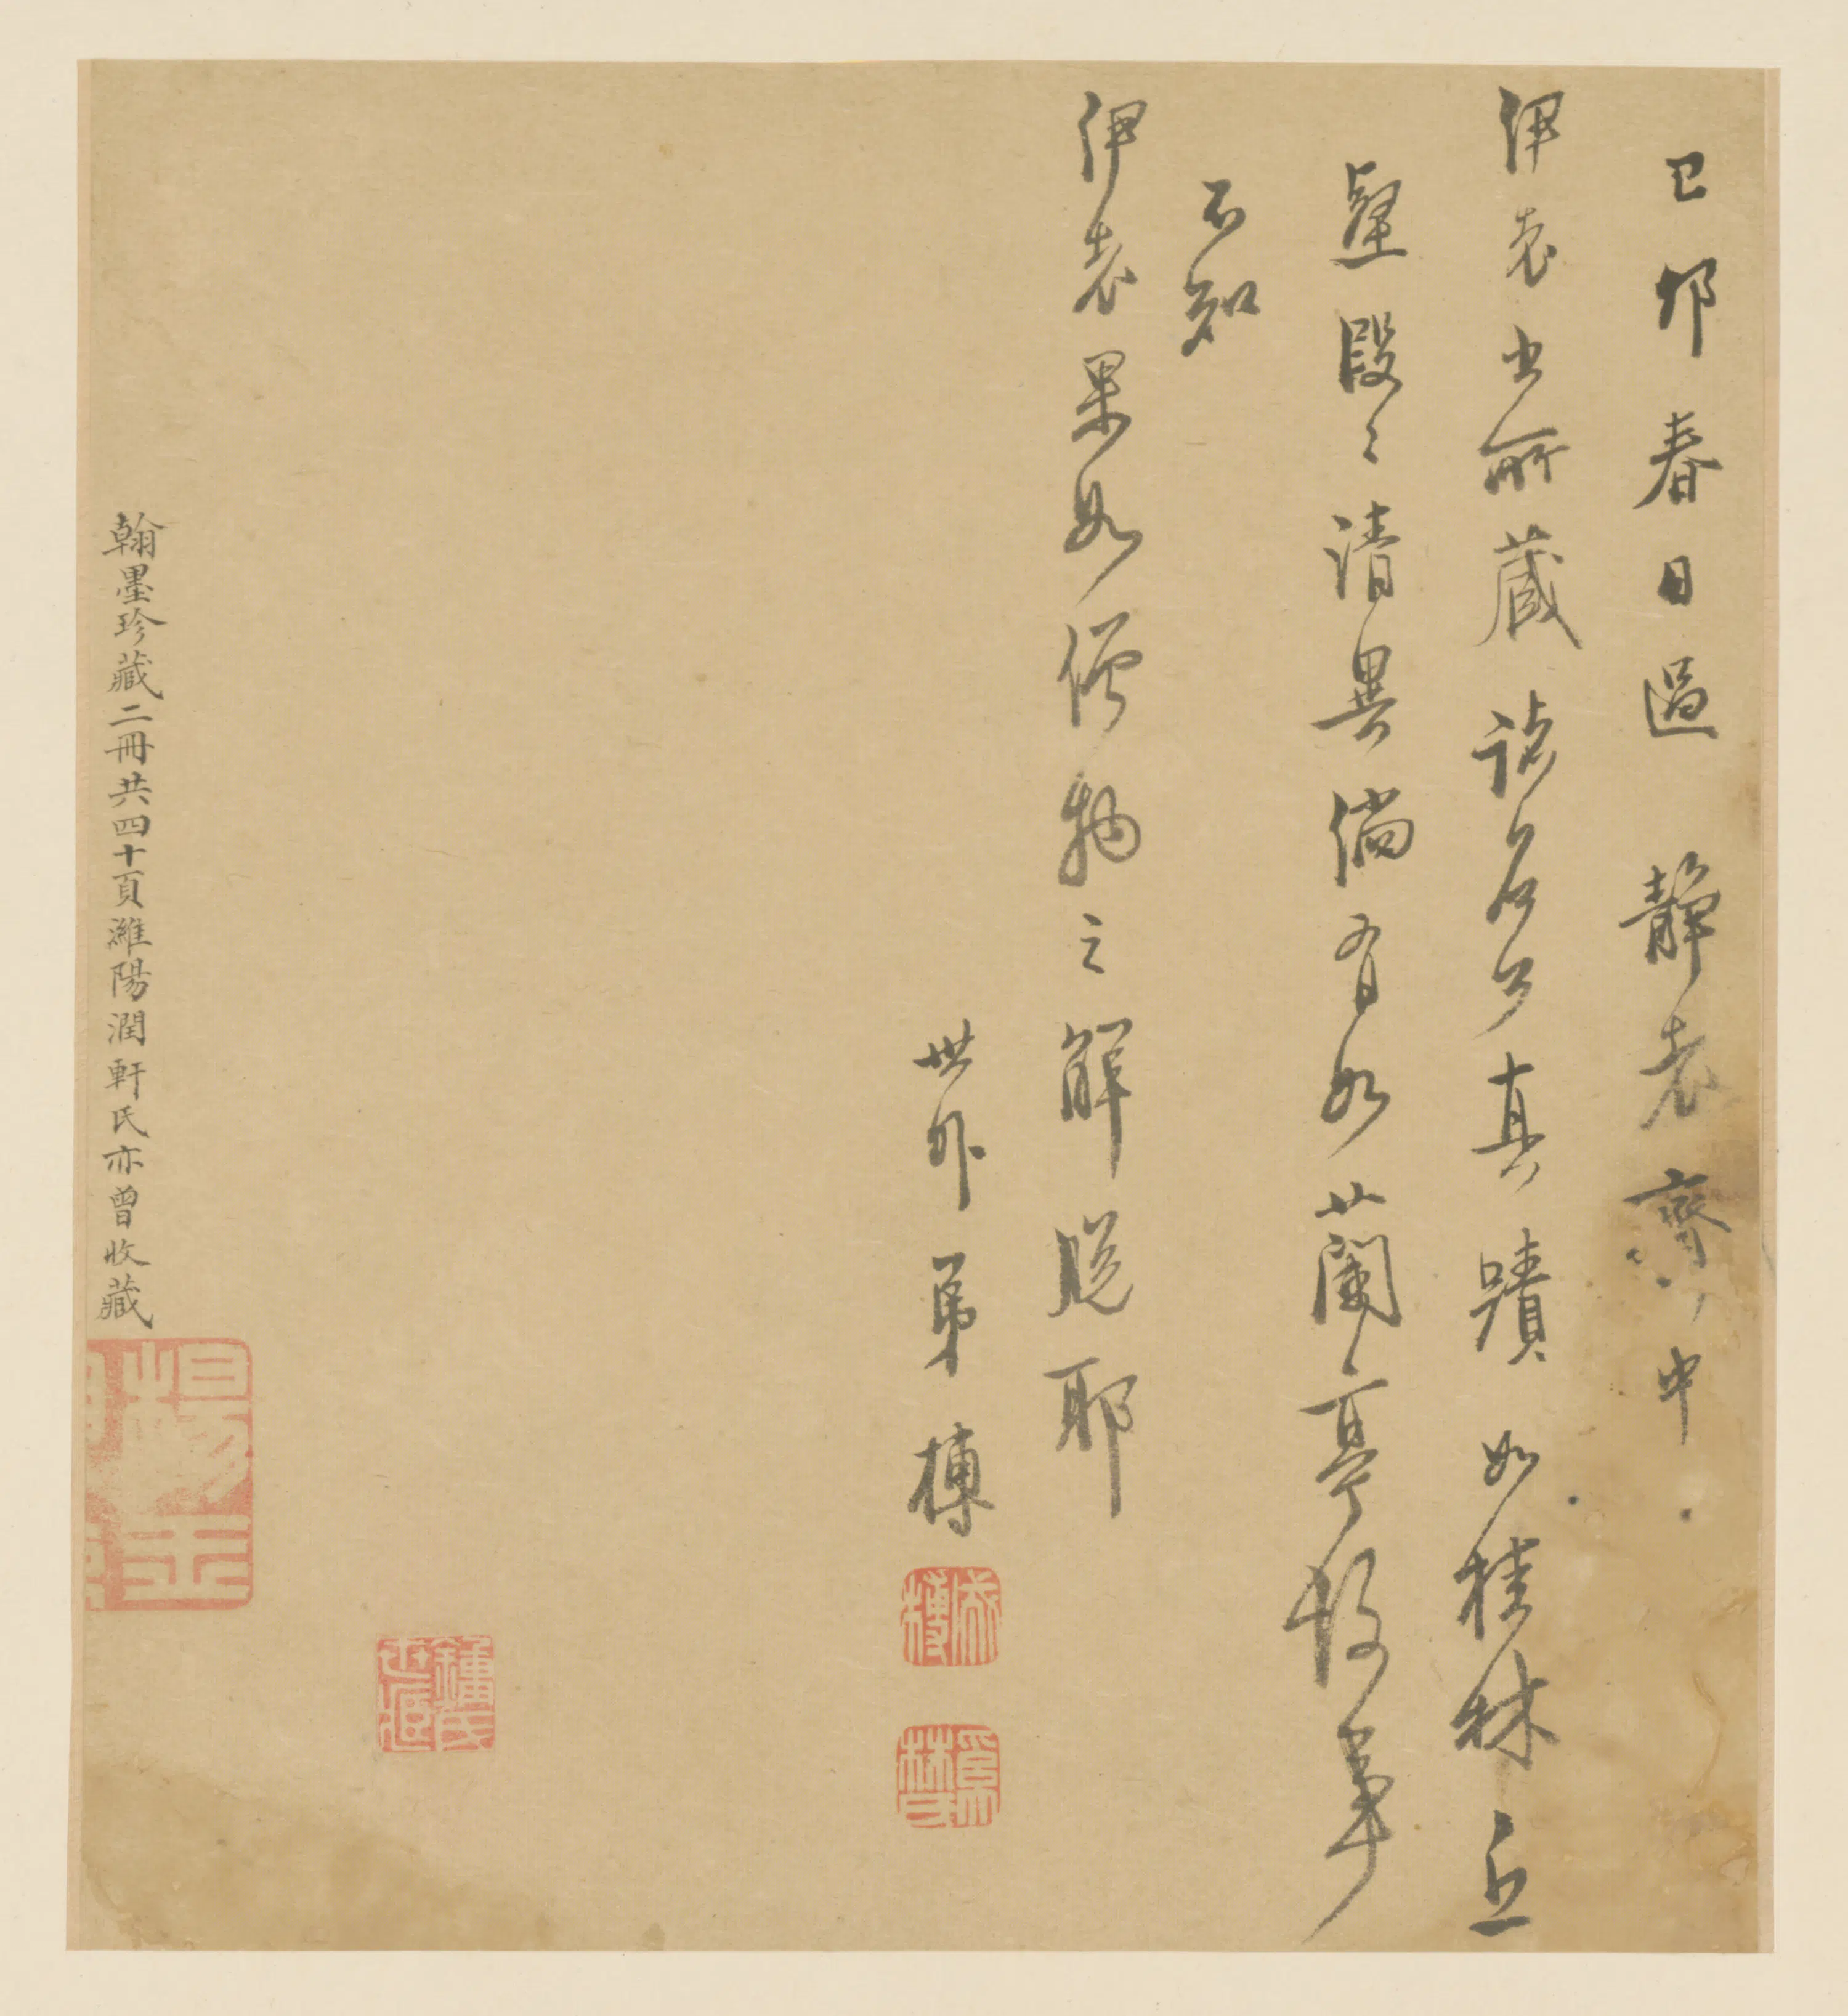 己卯春日過 靜老齋中
伊老出所藏諸名公真蹟如桂林丘
壑段〻清異倘有如蘭亭故事
不知
伊老果如僧物之解脫耶
世外弟榑
翰墨珍藏二冊共四十頁濰陽潤軒氏亦曾收藏